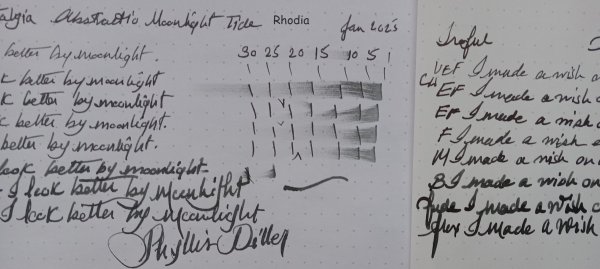 talgia Abstractio Moonlight Tide Rhodia Jan 2025
better by moonlight. 30 25 20 15 10 5 1
k better by moonlight
k better by moonlight
k better by moonlight.
better by moonlight.
look better by moonlight.
I look better by moonlight
I look better by moonlight
Phyllis Diller
Iroful
UEF I made a wish on
EF I made a wish o
EF I made a wish o
F I made a wish
M I made a wish on
B I made a wish on
fude I made a wish o
flex I made a wish